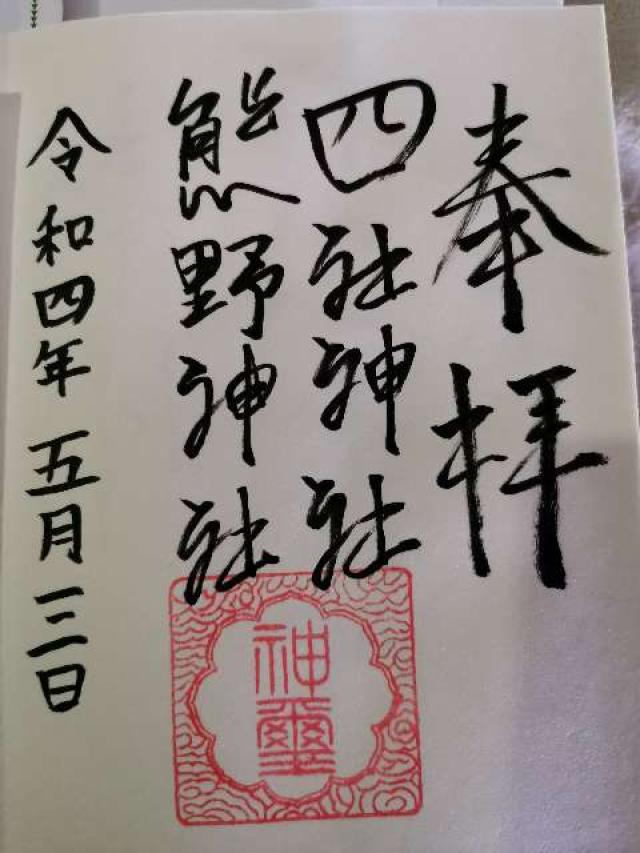 奉拝
四社神社
熊野神社
令和四年五月三日
神璽